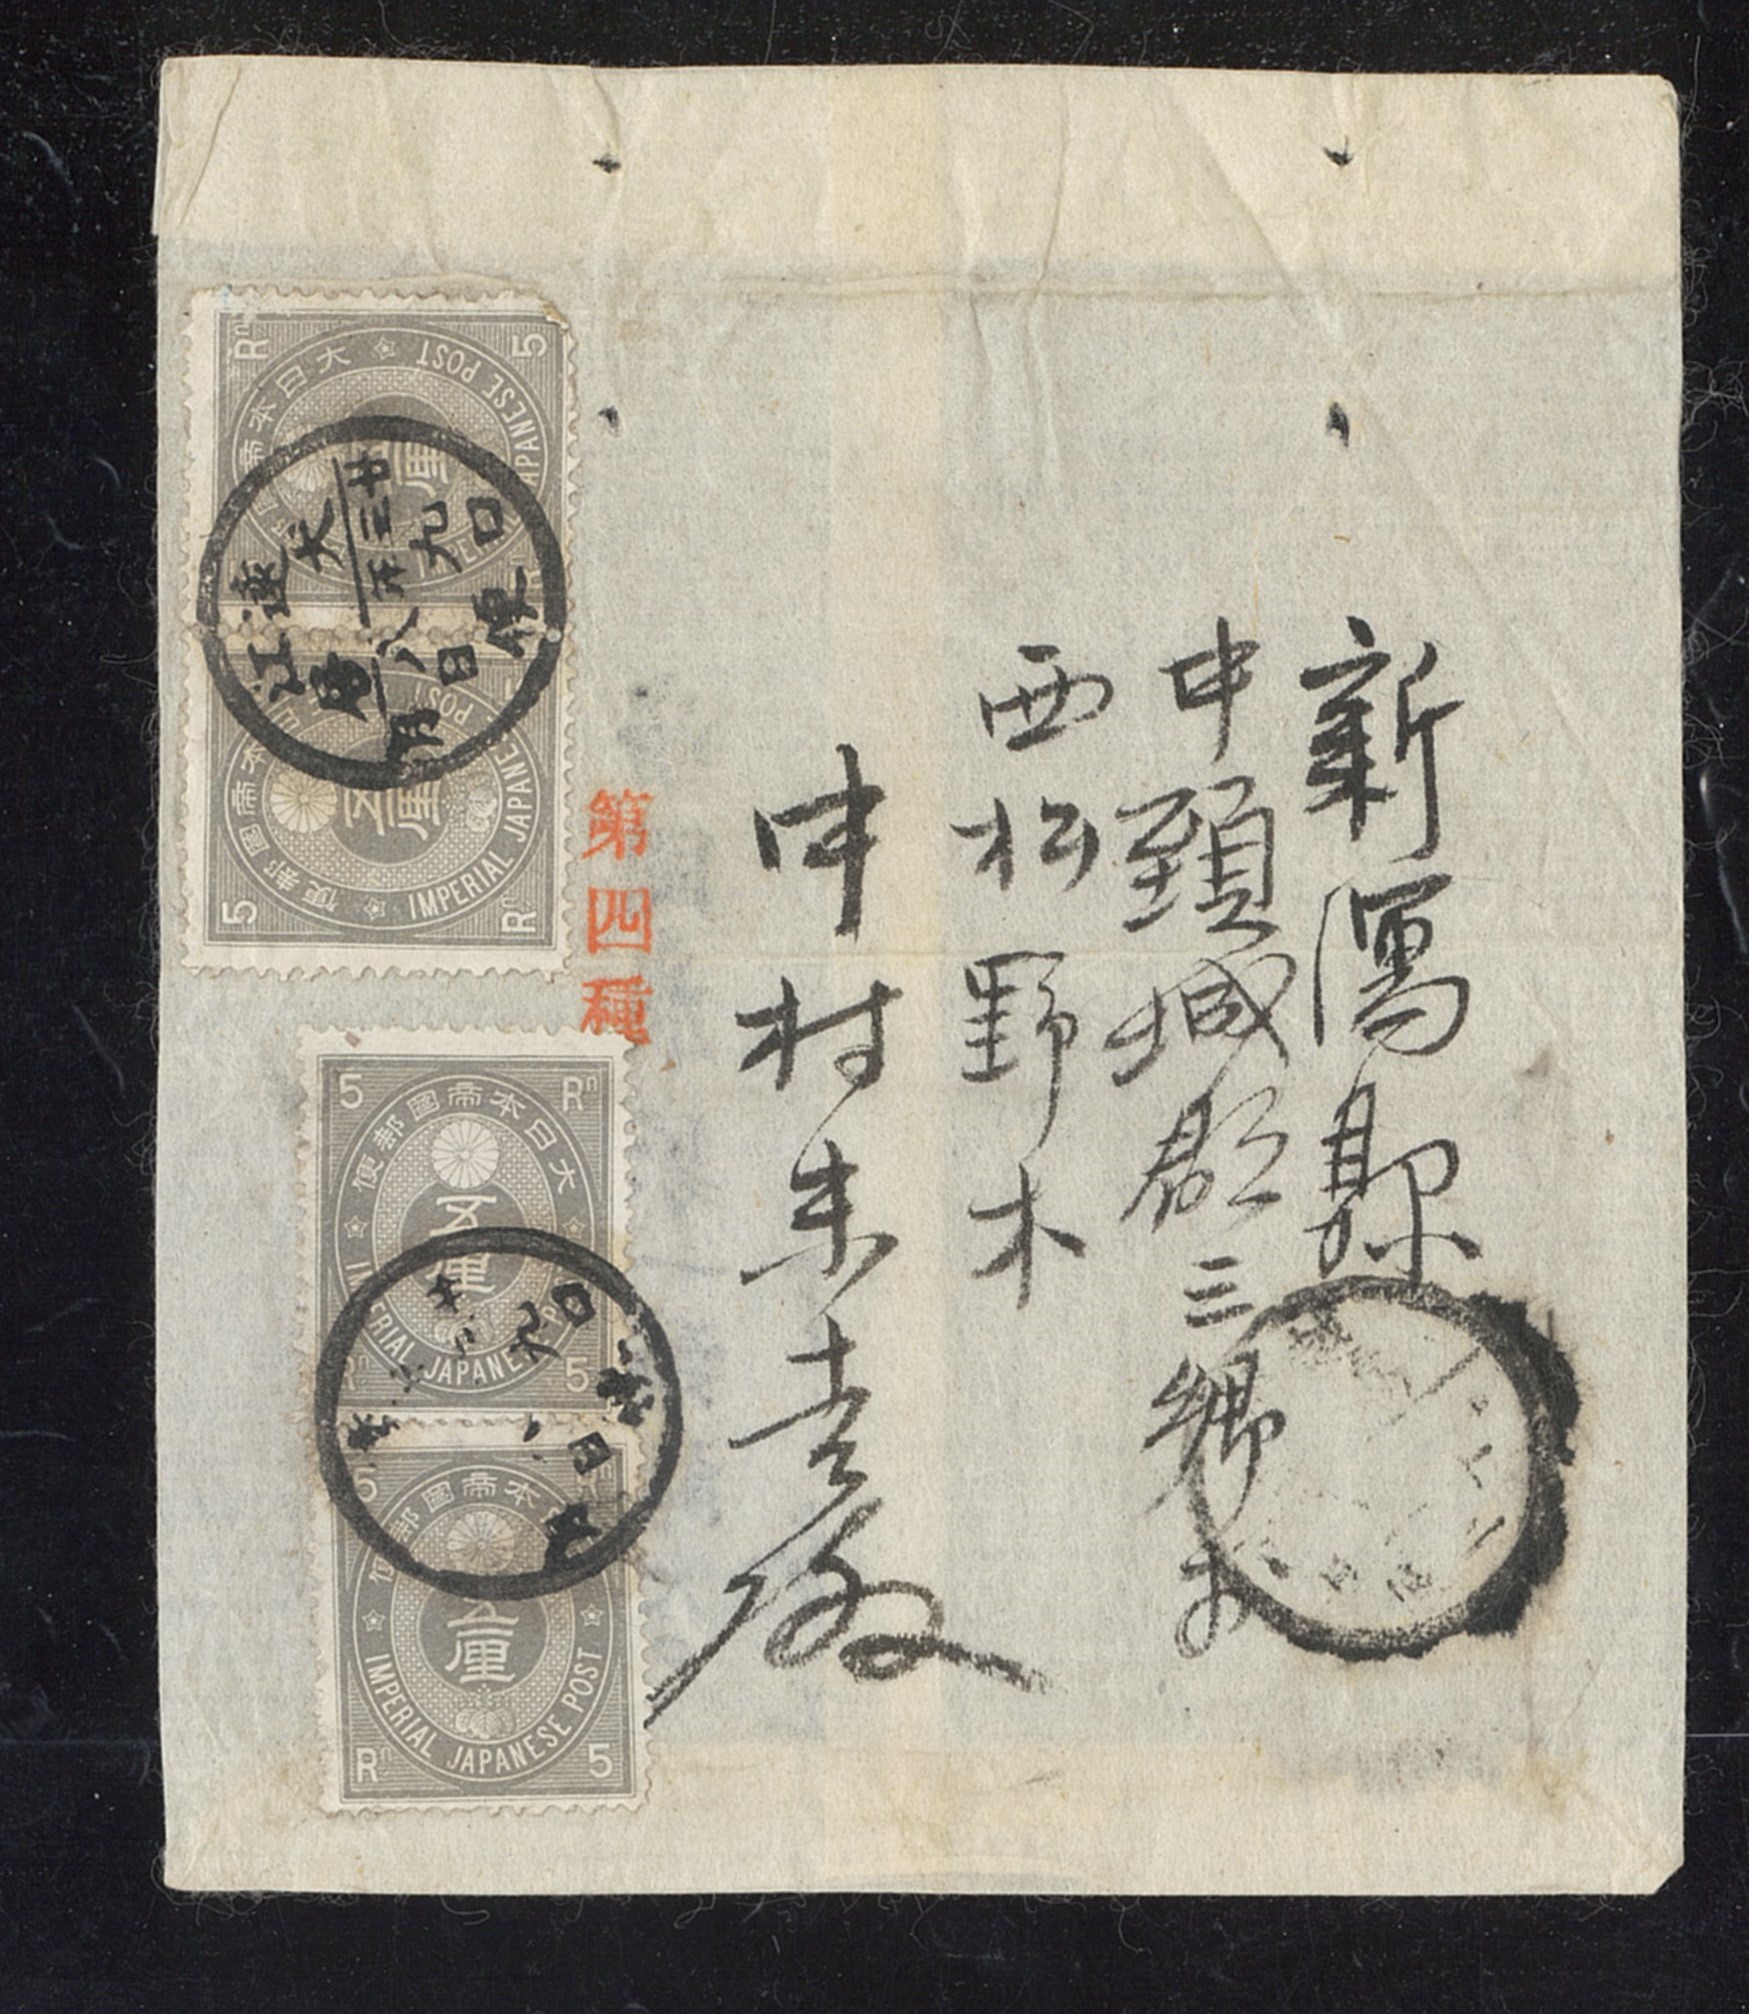 新潟縣
中頚城郡三郷村
西松野木
中村未吉殿
第四種
大日本帝國郵便
IMPERIAL JAPANESE POST
五厘
5 Rn
Rn 5
大日本帝國郵便
IMPERIAL JAPANESE POST
五厘
5 Rn
Rn 5
大日本帝國郵便
IMPERIAL JAPANESE POST
五厘
5 Rn
Rn 5
大日本帝國郵便
IMPERIAL JAPANESE POST
五厘
5 Rn
Rn 5
遠江
廿三年八月
九日
口便
九日